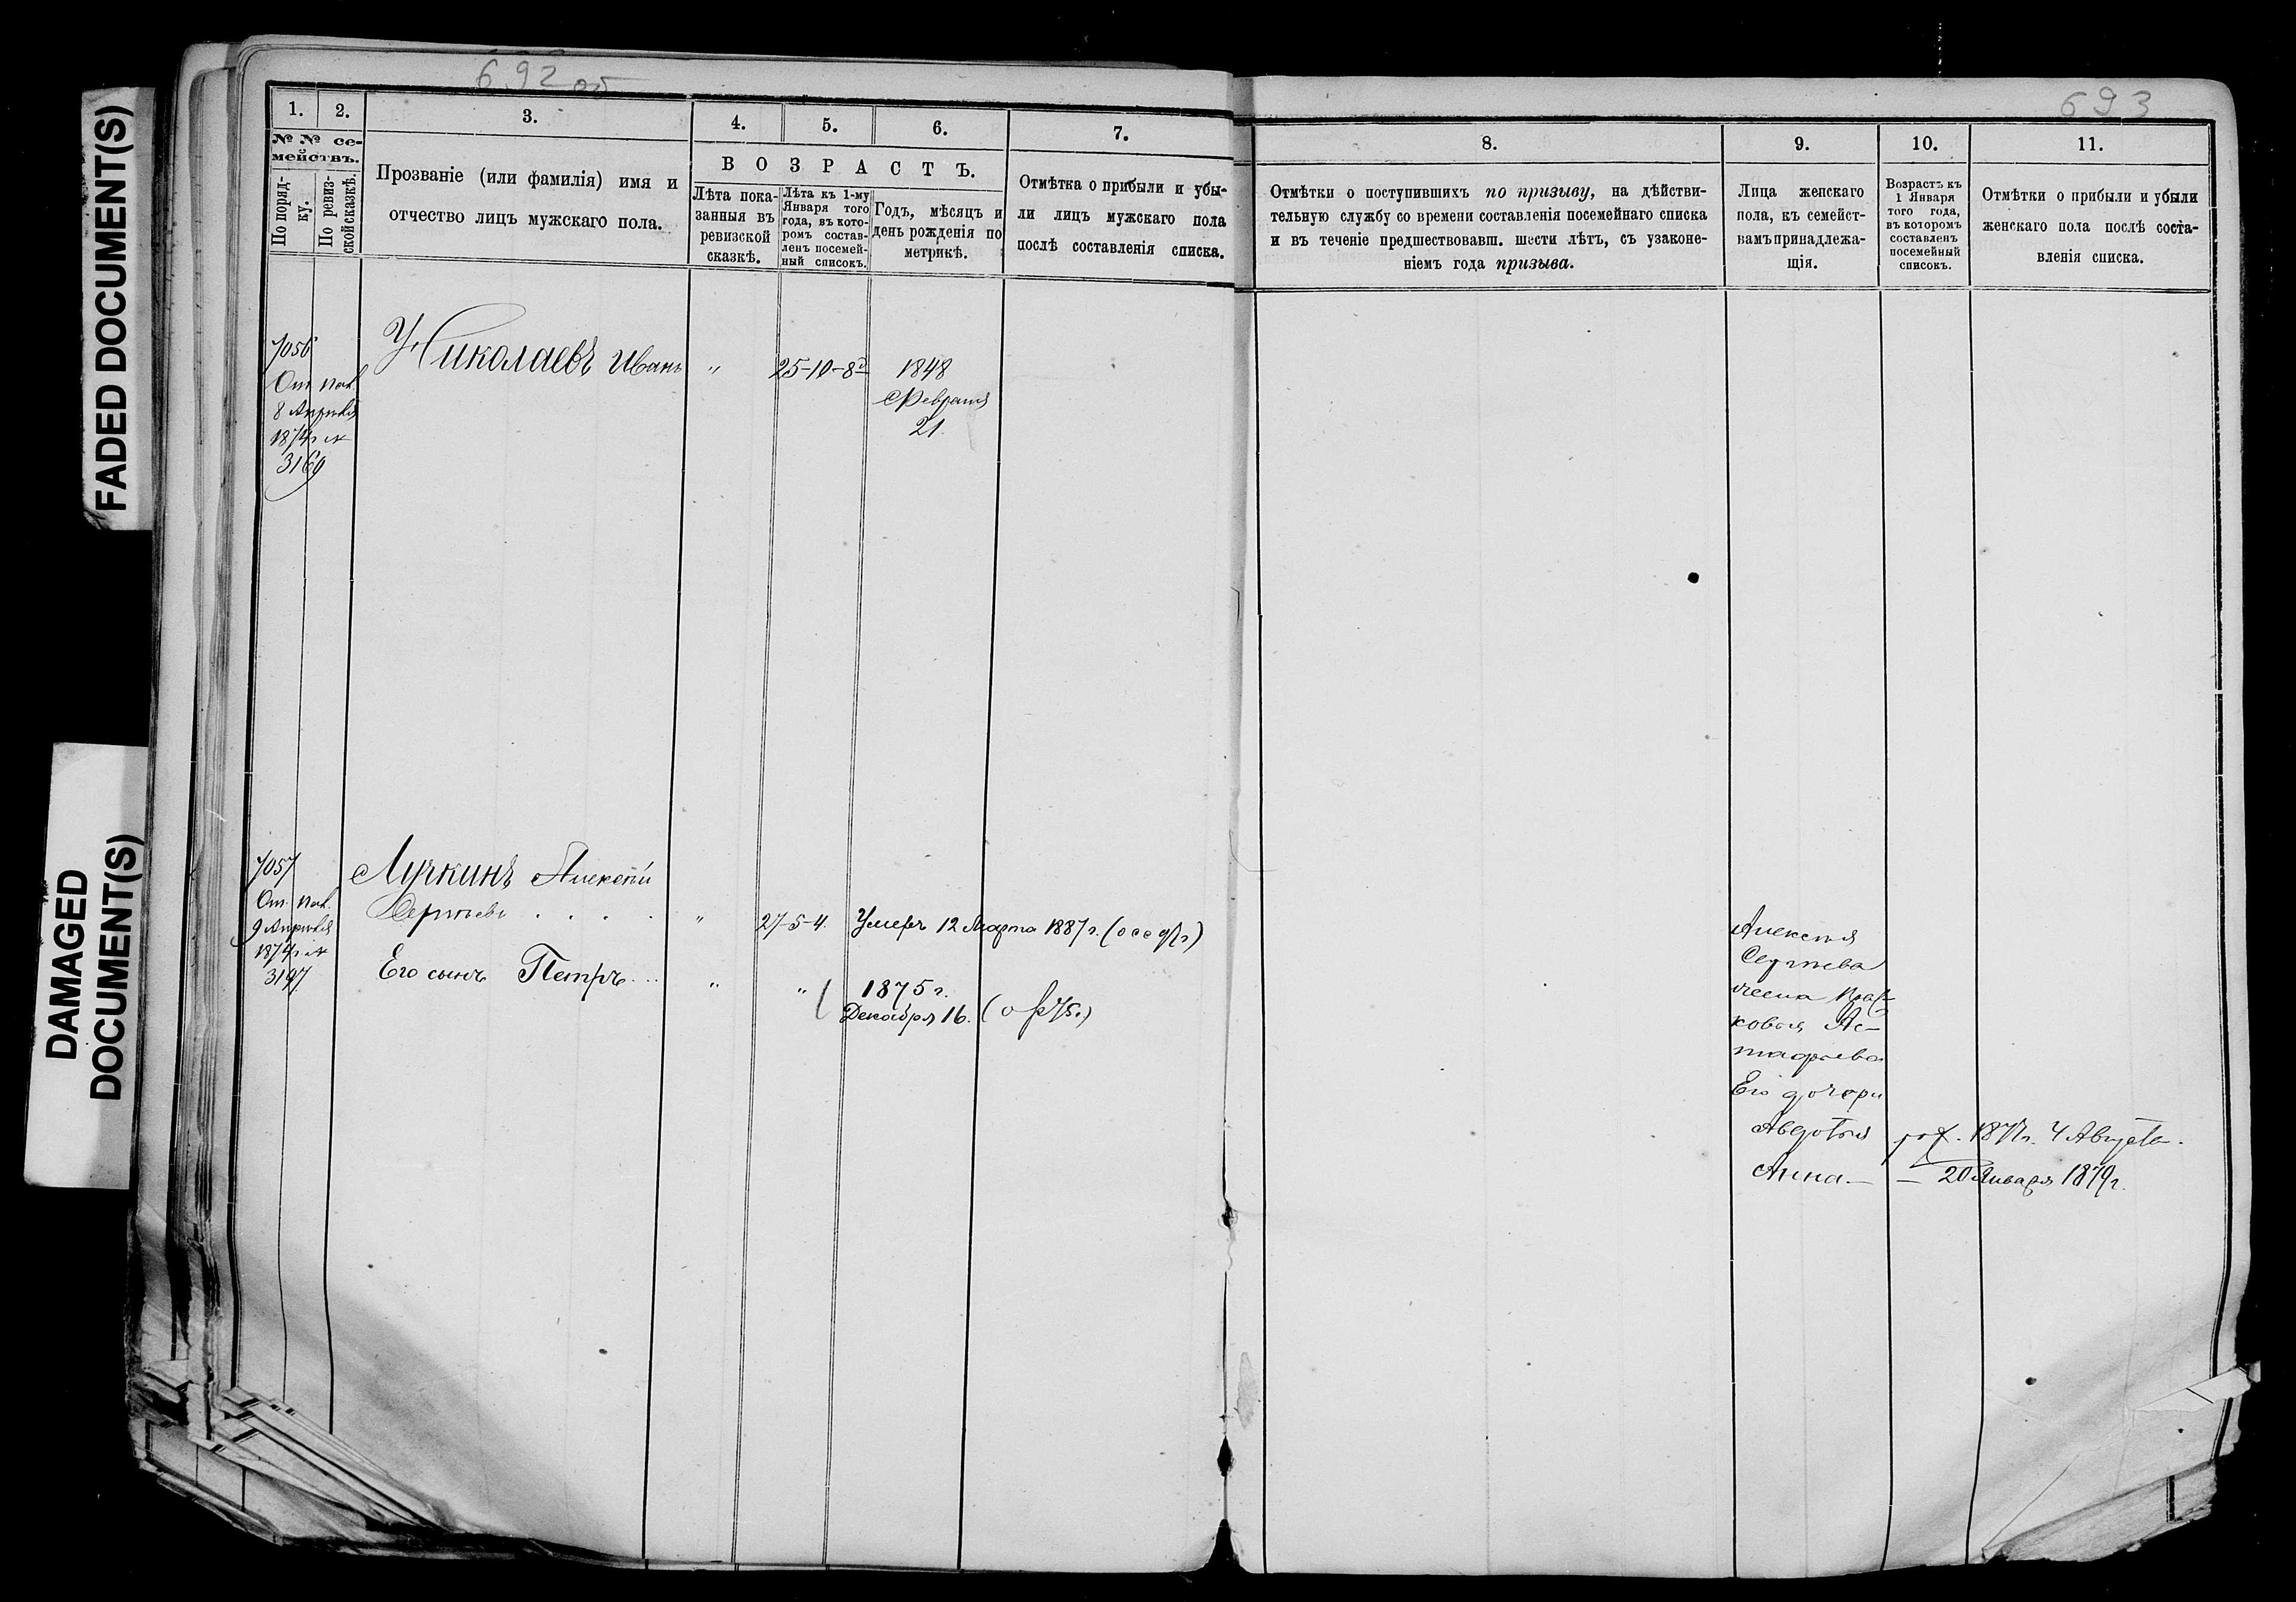 FADED DOCUMENT(S)
DAMAGED
DOCUMENT(S)
692 об
1.
2.
3.
4.
5.
6.
7.
№ № се-
мействъ.
По поряд-
ку.
По ревиз-
ской сказкѣ.
Прозваніе (или фамилія) имя и
отчество лицъ мужскаго пола.
ВОЗРАСТЪ.
Лѣта пока-
занныя въ
ревизской
сказкѣ.
Лѣта къ 1-му
Января того
года, въ кото-
ромъ состав-
ленъ посемей-
ный списокъ.
Годъ, мѣсяцъ и
день рожденія по
метрикѣ.
Отмѣтка о прибыли и убы-
ли лицъ мужскаго пола
послѣ составленія списка.
7056
8 Апрѣля
1874 г №
3169
Николаевъ Иванъ
"
25-10-8
1848
Февраля
21.
7057
9 Апрѣля
1874 г №
3197
Лучкинъ Алексѣй
Сергѣевъ . . . .
"
27-5-4.
Умеръ 12 Марта 1887 г.
Его сынъ Петръ...
"
"
1875 г.
Декабря 16.
693
8.
9.
10.
11.
Отмѣтки о поступившихъ по призыву, на дѣйстви-
тельную службу со времени составленія посемейнаго списка
и въ теченіе предшествовавш. шести лѣтъ, съ узаконе-
ніемъ года призыва.
Лица женскаго
пола, къ семейст-
вамъ принадлежа-
щія.
Возрастъ къ
1 Января
того года,
въ которомъ
составленъ
посемейный
списокъ.
Отмѣтки о прибыли и убыли
женскаго пола послѣ соста-
вленія списка.
Алексѣя
Сергѣева
жена Прас-
ковья Ас-
тафьева
Его дочери
Авдотья
рож. 1877 г. 4 Августа.
Анна —
— 20 Января 1879 г.